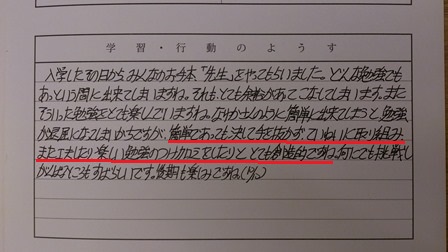 学習・行動のようす
入学したその日から、みんなのお手本、「先生」をやってもらいました。どんな勉強でも
あっという間に出来てしまいますね。それも、とても余裕があってこなしてしまいます。また
そういった勉強をとても楽しんでいますね。なかなかのように簡単に出来てしまうと、勉強
が退屈になってしまいがちですが、簡単であっても決して手を抜かずていねいに取り組み
また工夫したり楽しい勉強のつけ加えをしたりと、とても創造的ですね。何にでも挑戦し
がんばるところもすばらしいです。後期も楽しみですね。